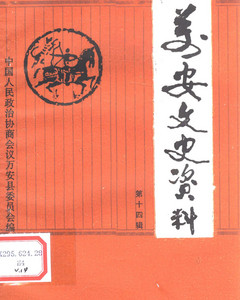 万安文史资料
第十四辑
中国人民政治协商会议万安县委员会编
K295.624.28
V.14